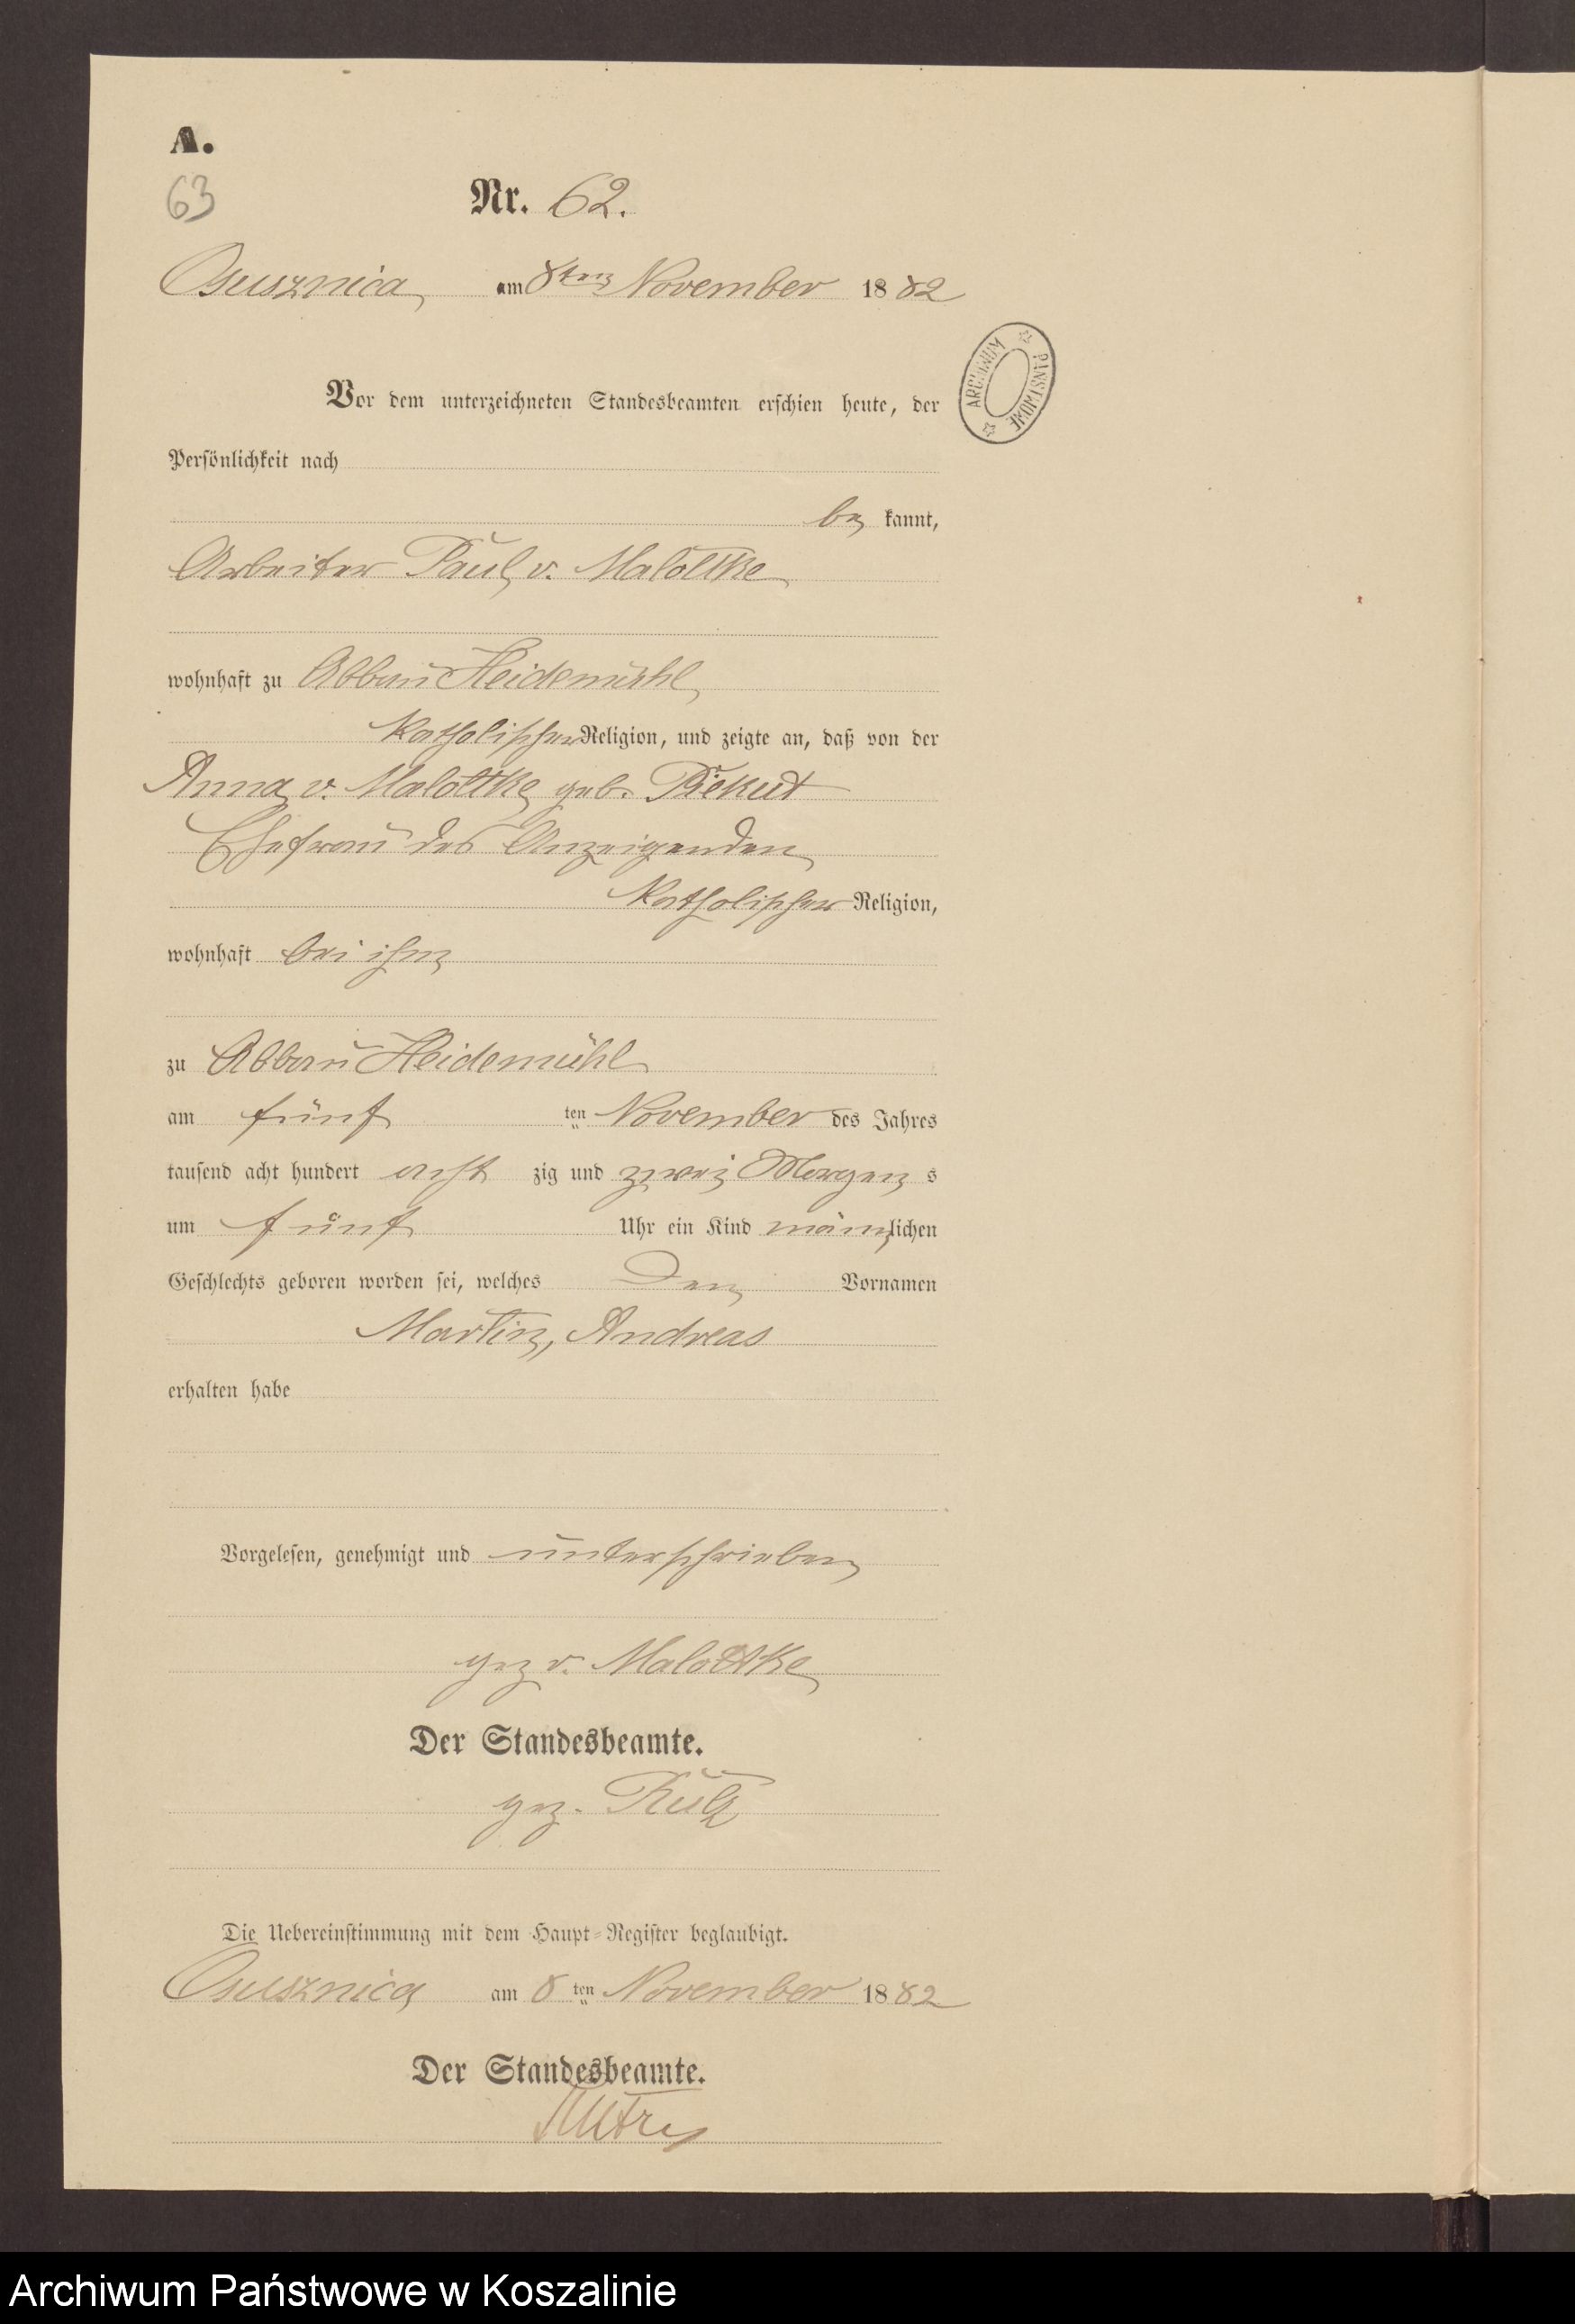 A.
63
Nr. 62.
Ossusznica am 8ten November 1882
ARCHIWUM PAŃSTWOWE
Vor dem unterzeichneten Standesbeamten erschien heute, der
Persönlichkeit nach
be kannt,
Arbeiter Paul v. Malottke
wohnhaft zu Abbau Heidemühl
katholischer Religion, und zeigte an, daß von der
Anna v. Malottke geb. Piekut
Ehefrau des Anzeigenden
katholischer Religion,
wohnhaft bei ihm
zu Abbau Heidemühl
am fünf ten November des Jahres
tausend acht hundert acht zig und zwei Morgen s
um fünf Uhr ein Kind männlichen
Geschlechts geboren worden sei, welches den Vornamen
Martin, Andreas
erhalten habe
Vorgelesen, genehmigt und unterschrieben
gez v. Malottke
Der Standesbeamte.
gez.
Die Uebereinstimmung mit dem Haupt-Register beglaubigt.
Ossusznica am 8 ten November 1882
Der Standesbeamte.
Archiwum Państwowe w Koszalinie